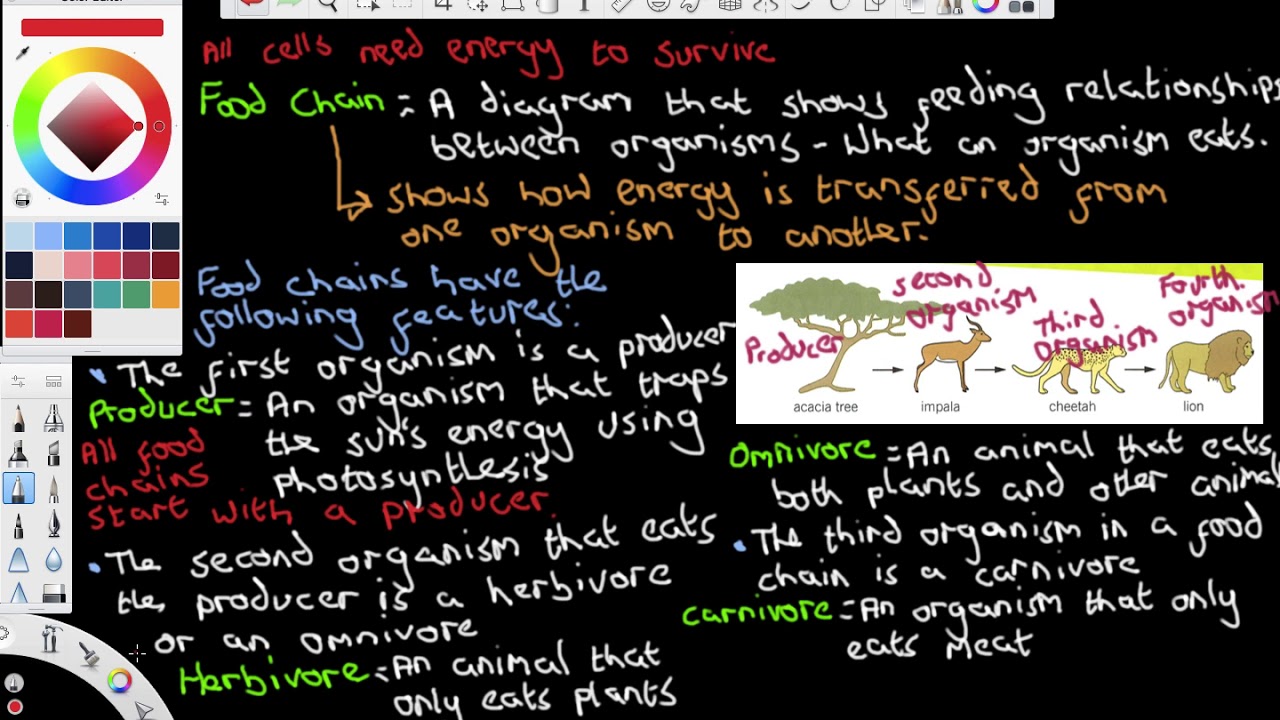 All cells need energy to survive
Food Chain = A diagram that shows feeding relationships
between organisms - What an organism eats.
shows how energy is transferred from
one organism to another.
Food chains have the
following features:
• The first organism is a producer
Producer = An organism that traps
the sun's energy using
photosynthesis
All food
chains
start with a producer.
• The second organism that eats
the producer is a herbivore
or an omnivore
Herbivore = An animal that
only eats plants
Producer
second
organism
Third
organism
Fourth
organism
acacia tree
impala
cheetah
lion
Omnivore = An animal that eats
both plants and other animal
• The third organism in a food
chain is a carnivore
carnivore = An organism that only
eats meat